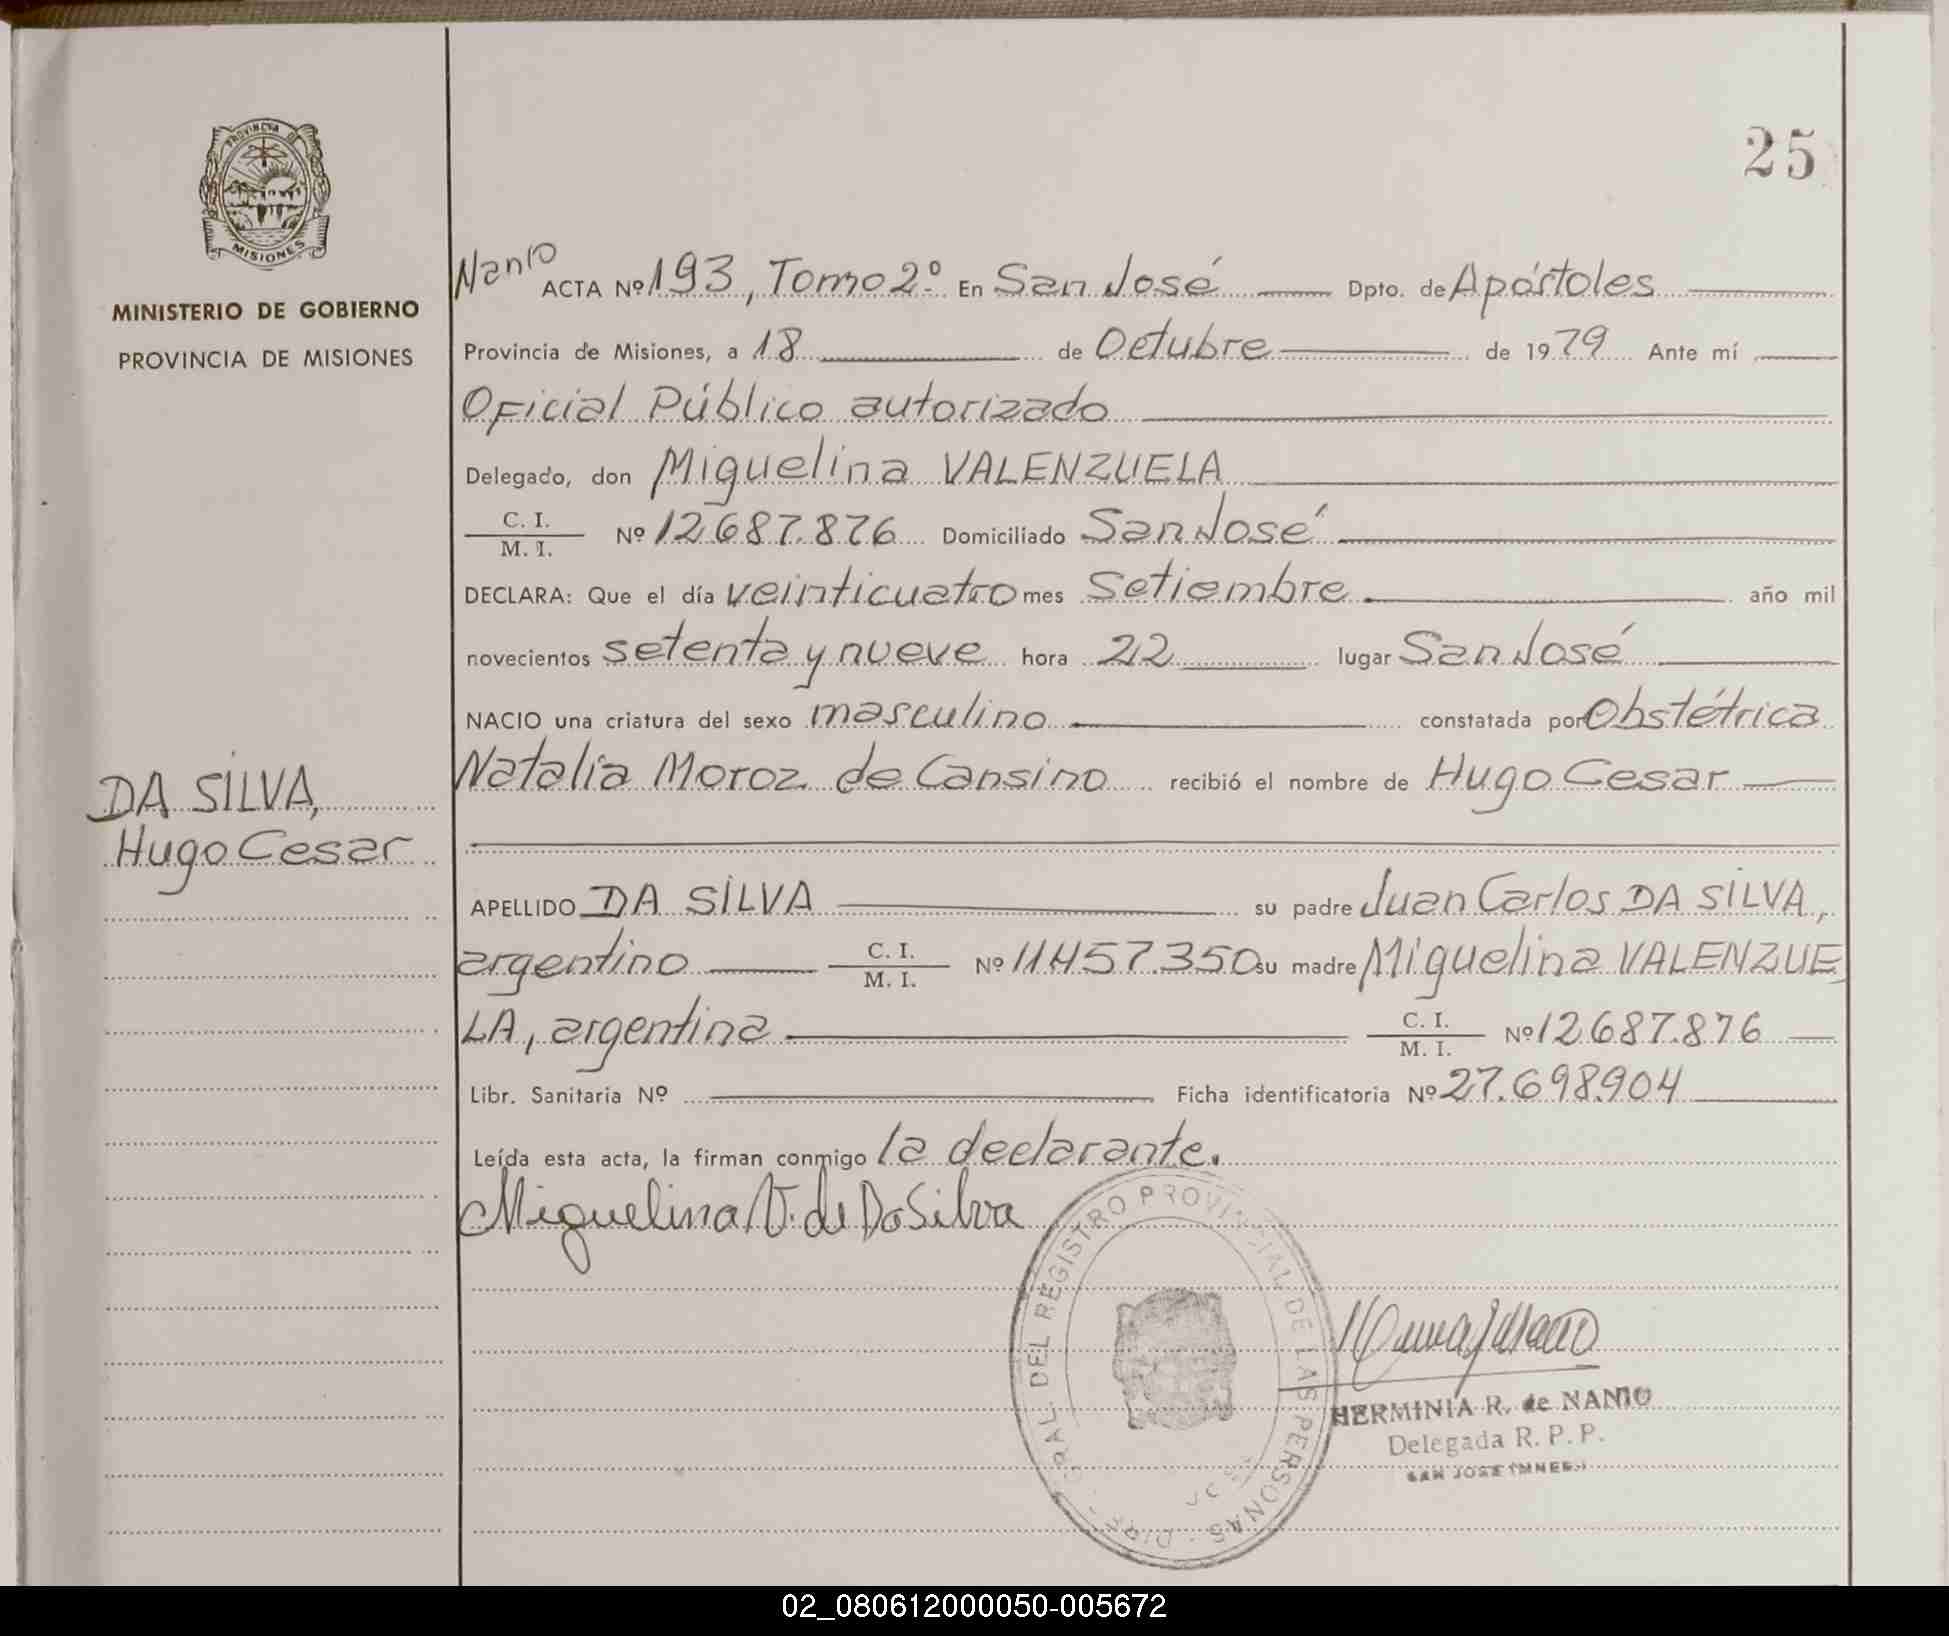 PROVINCIA DE
MISIONES
MINISTERIO DE GOBIERNO
PROVINCIA DE MISIONES
25
Nanio
ACTA Nº 193, Tomo 2º. En San José Dpto. de Apóstoles
Provincia de Misiones, a 18 de Octubre de 1979 Ante mí
Oficial Público autorizado
Delegado, don Miguelina VALENZUELA
C. I.
M. I. Nº 12687.876 Domiciliado San José
DECLARA: Que el día veinticuatro mes Setiembre año mil
novecientos setenta y nueve hora 22 lugar San José
NACIO una criatura del sexo masculino constatada por Obstétrica
Natalia Moroz de Cansino recibió el nombre de Hugo Cesar
DA SILVA,
Hugo Cesar
APELLIDO DA SILVA su padre Juan Carlos DA SILVA,
argentino C. I.
M. I. Nº 11457.350 su madre Miguelina VALENZUE
LA, argentina C. I.
M. I. Nº 12687.876
Libr. Sanitaria Nº Ficha identificatoria Nº 27.698.904
Leída esta acta, la firman conmigo la declarante.
Miguelina V. de Da Silva
GRAL. DEL REGISTRO PROVINCIAL DE LAS PERSONAS
HERMINIA R. de NANIO
Delegada R. P. P.
SAN JOSE (MNES.)
02_080612000050-005672